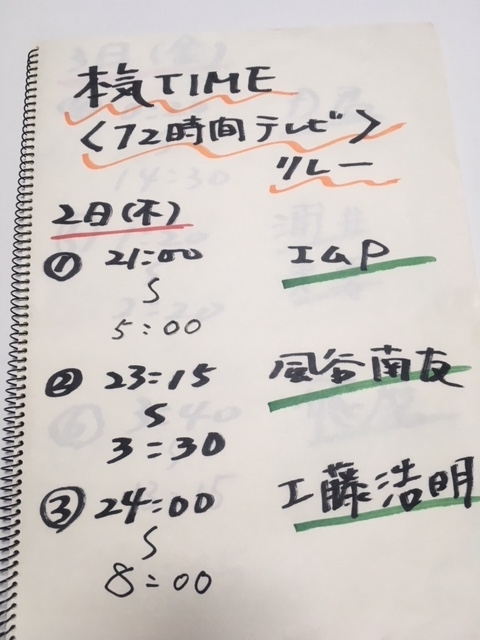 本気TIME
〈72時間テレビ〉
リレー
2日(木)
① 21:00 IGP
〜
5:00
② 23:15 風谷南友
〜
3:30
③ 24:00 工藤浩明
〜
8:00